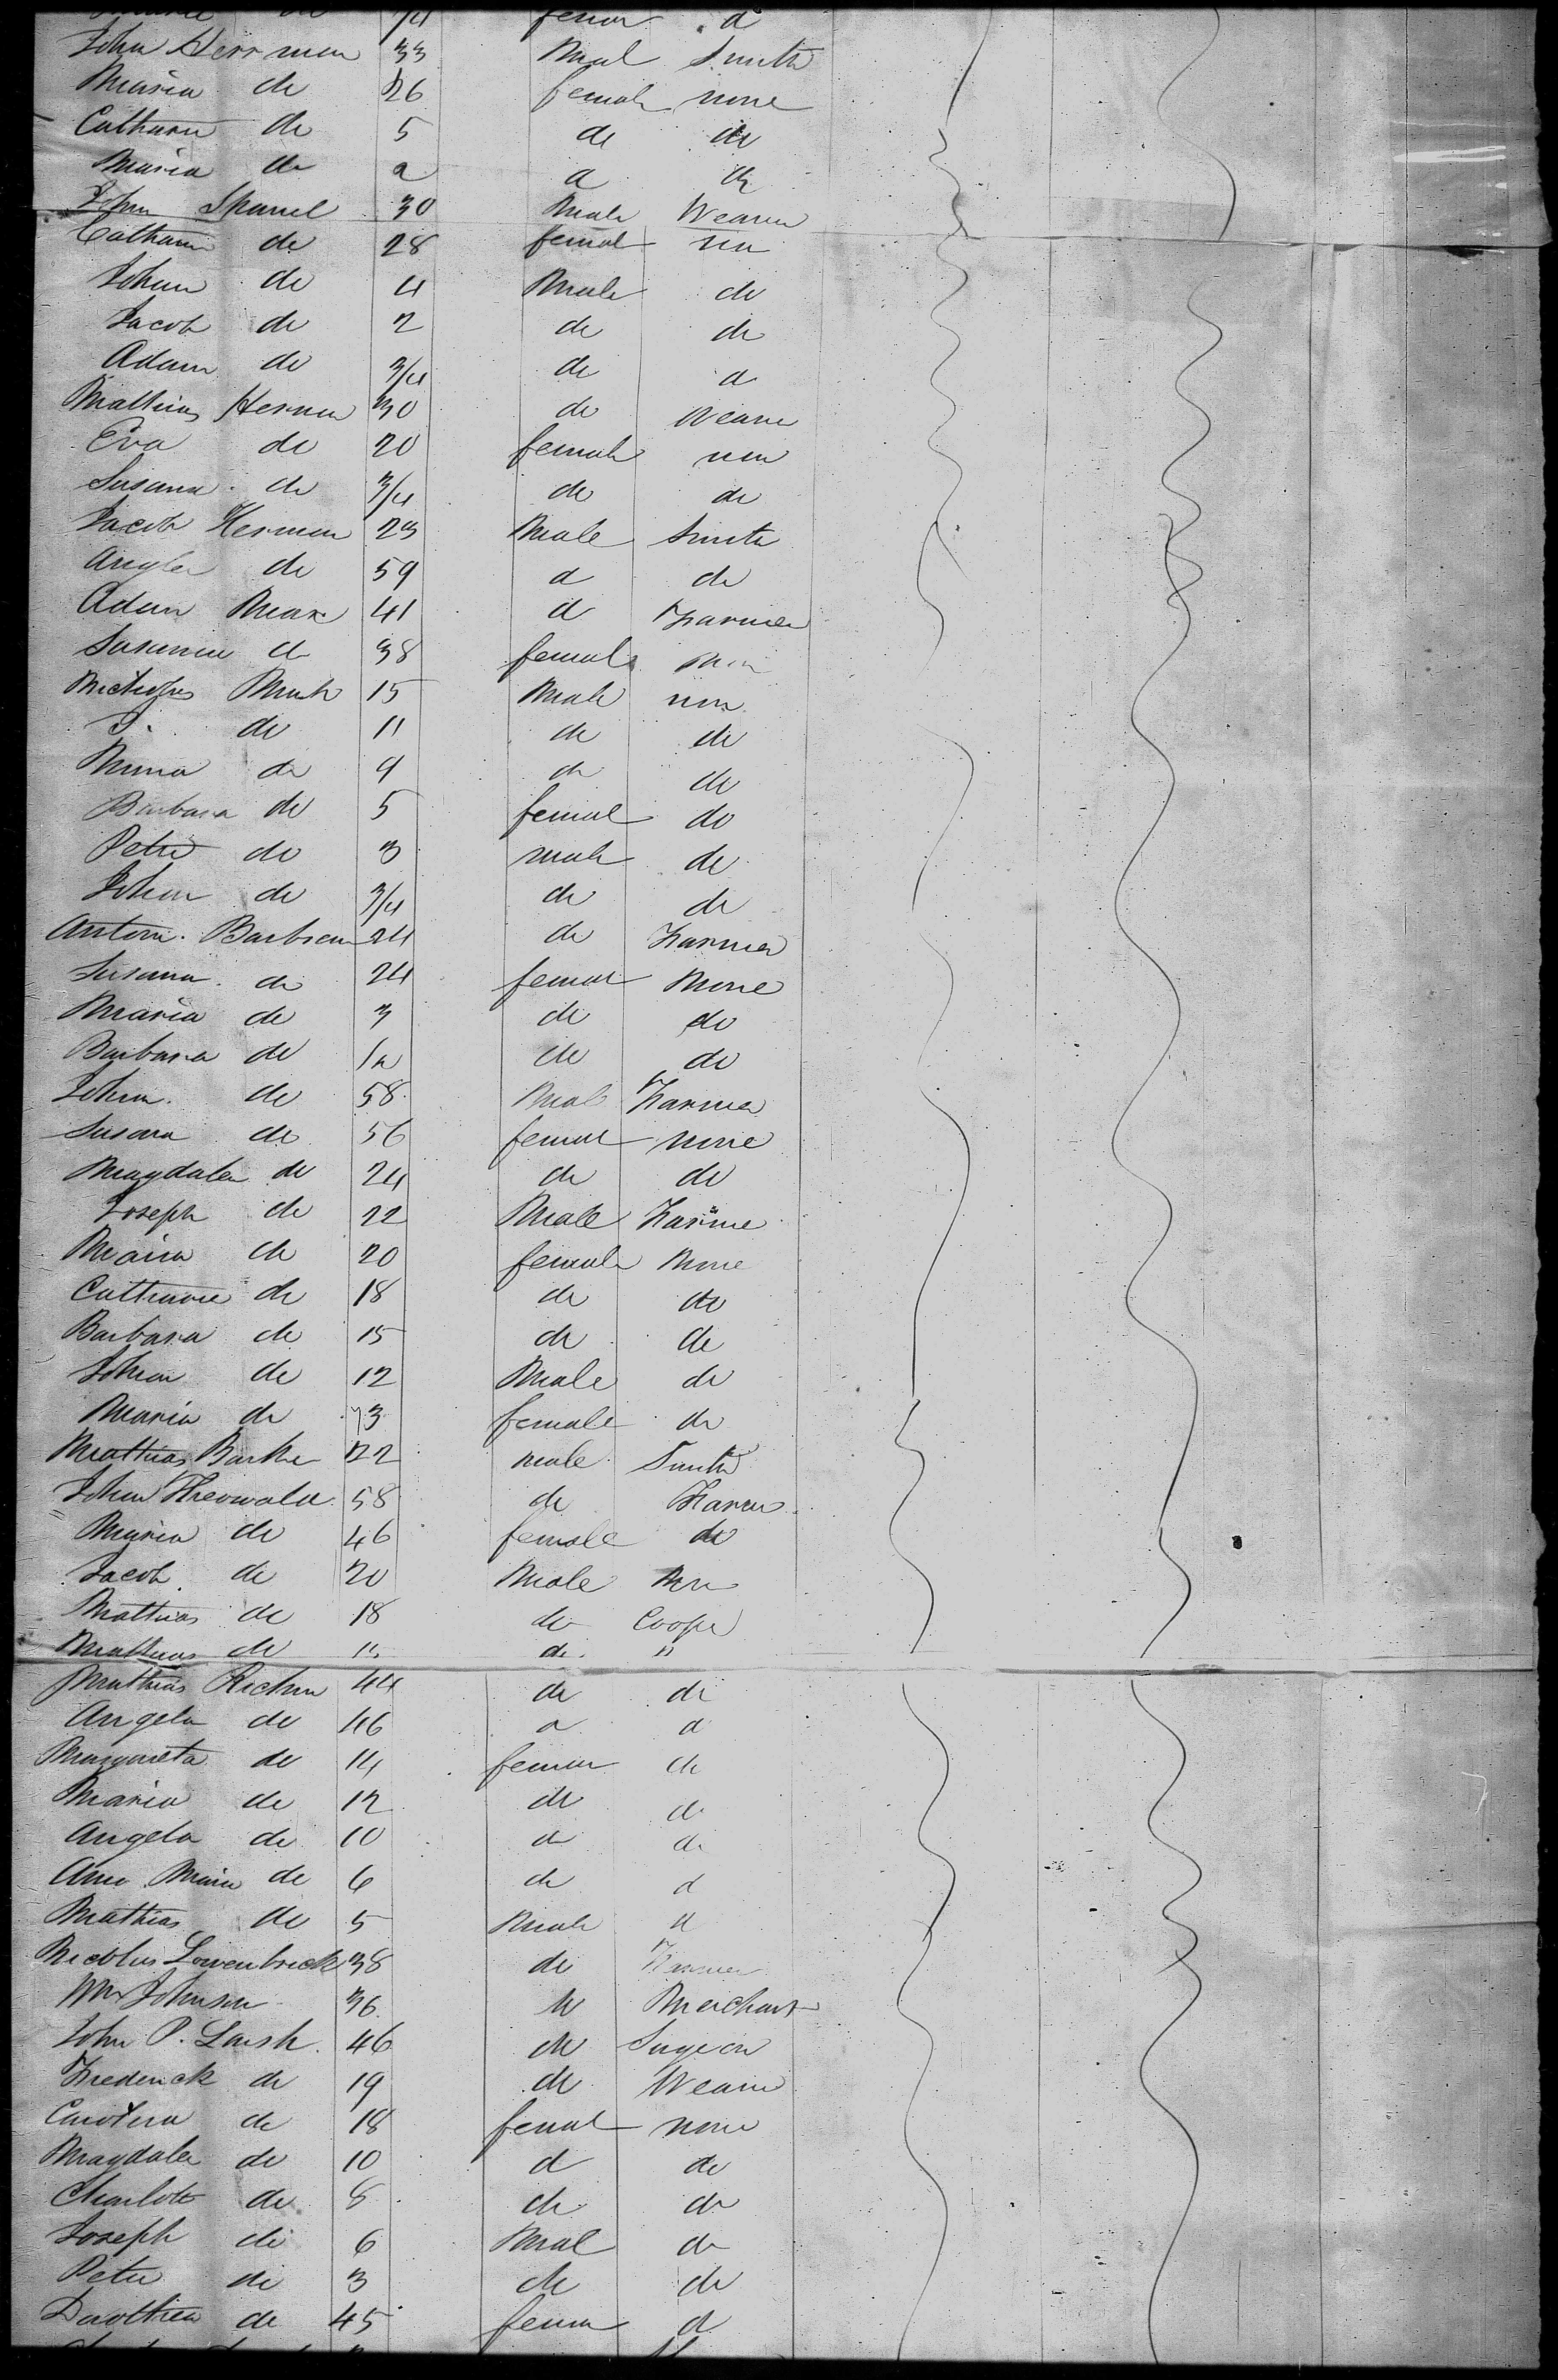 3/4 femal d
John Herrman 33 Mal Smith
Maria do 26 female none
Catharin do 5 do do
Maria do 2 d do
John Spaniel 30 Male Weaver
Catharin do 28 femal non
Johan do 4 Male do
Jacob do 2 do do
Adam do 3/4 do d
Mathias Herman 30 do Weaver
Eva do 20 female non
Susana do 3/4 do do
Jacob Herman 29 Male Smith
Angla do 59 d do
Adam 41 d Farmer
Susanna d 38 female
15 Male non
J. do 11 do do
do 9 do do
Barbara do 5 femal do
Peter do 3 male do
Johan do 3/4 do do
Anton 24 do Farmer
Susana do 24 femal None
Maria do 3 do do
Barbara do do do
Johan do 58 Mal Farmer
Susana do 56 femal none
Magdalen do 24 do do
Joseph do 22 Male Farme
Maria do 20 female None
Cathrine do 18 do do
Barbara do 15 do do
Johan do 12 Male do
Maria do 73 female do
Mathias 22 male Smith
Johan 58 do Farmer
Maria do 46 female do
Jacob do 20 Male
Mathias do 18 do Cooper
Mathias do do "
Mathias 44 do do
Angela do 46 d d
Margareta do 14 femal do
Maria do 12 do do
Angela do 10 d do
Ana Maria do 6 do d
Mathias do 5 Male d
Nicolus Lowenbrick 38 do Farmer
Wm Johnson 36 do Merchant
John P. 46 do Surgeon
Frederick do 19 do Weaver
do 18 femal none
Magdalen do 10 d do
Charlott do 8 do do
Joseph do 6 Mal do
Peter do 3 do do
Dorothea do 45 femal d